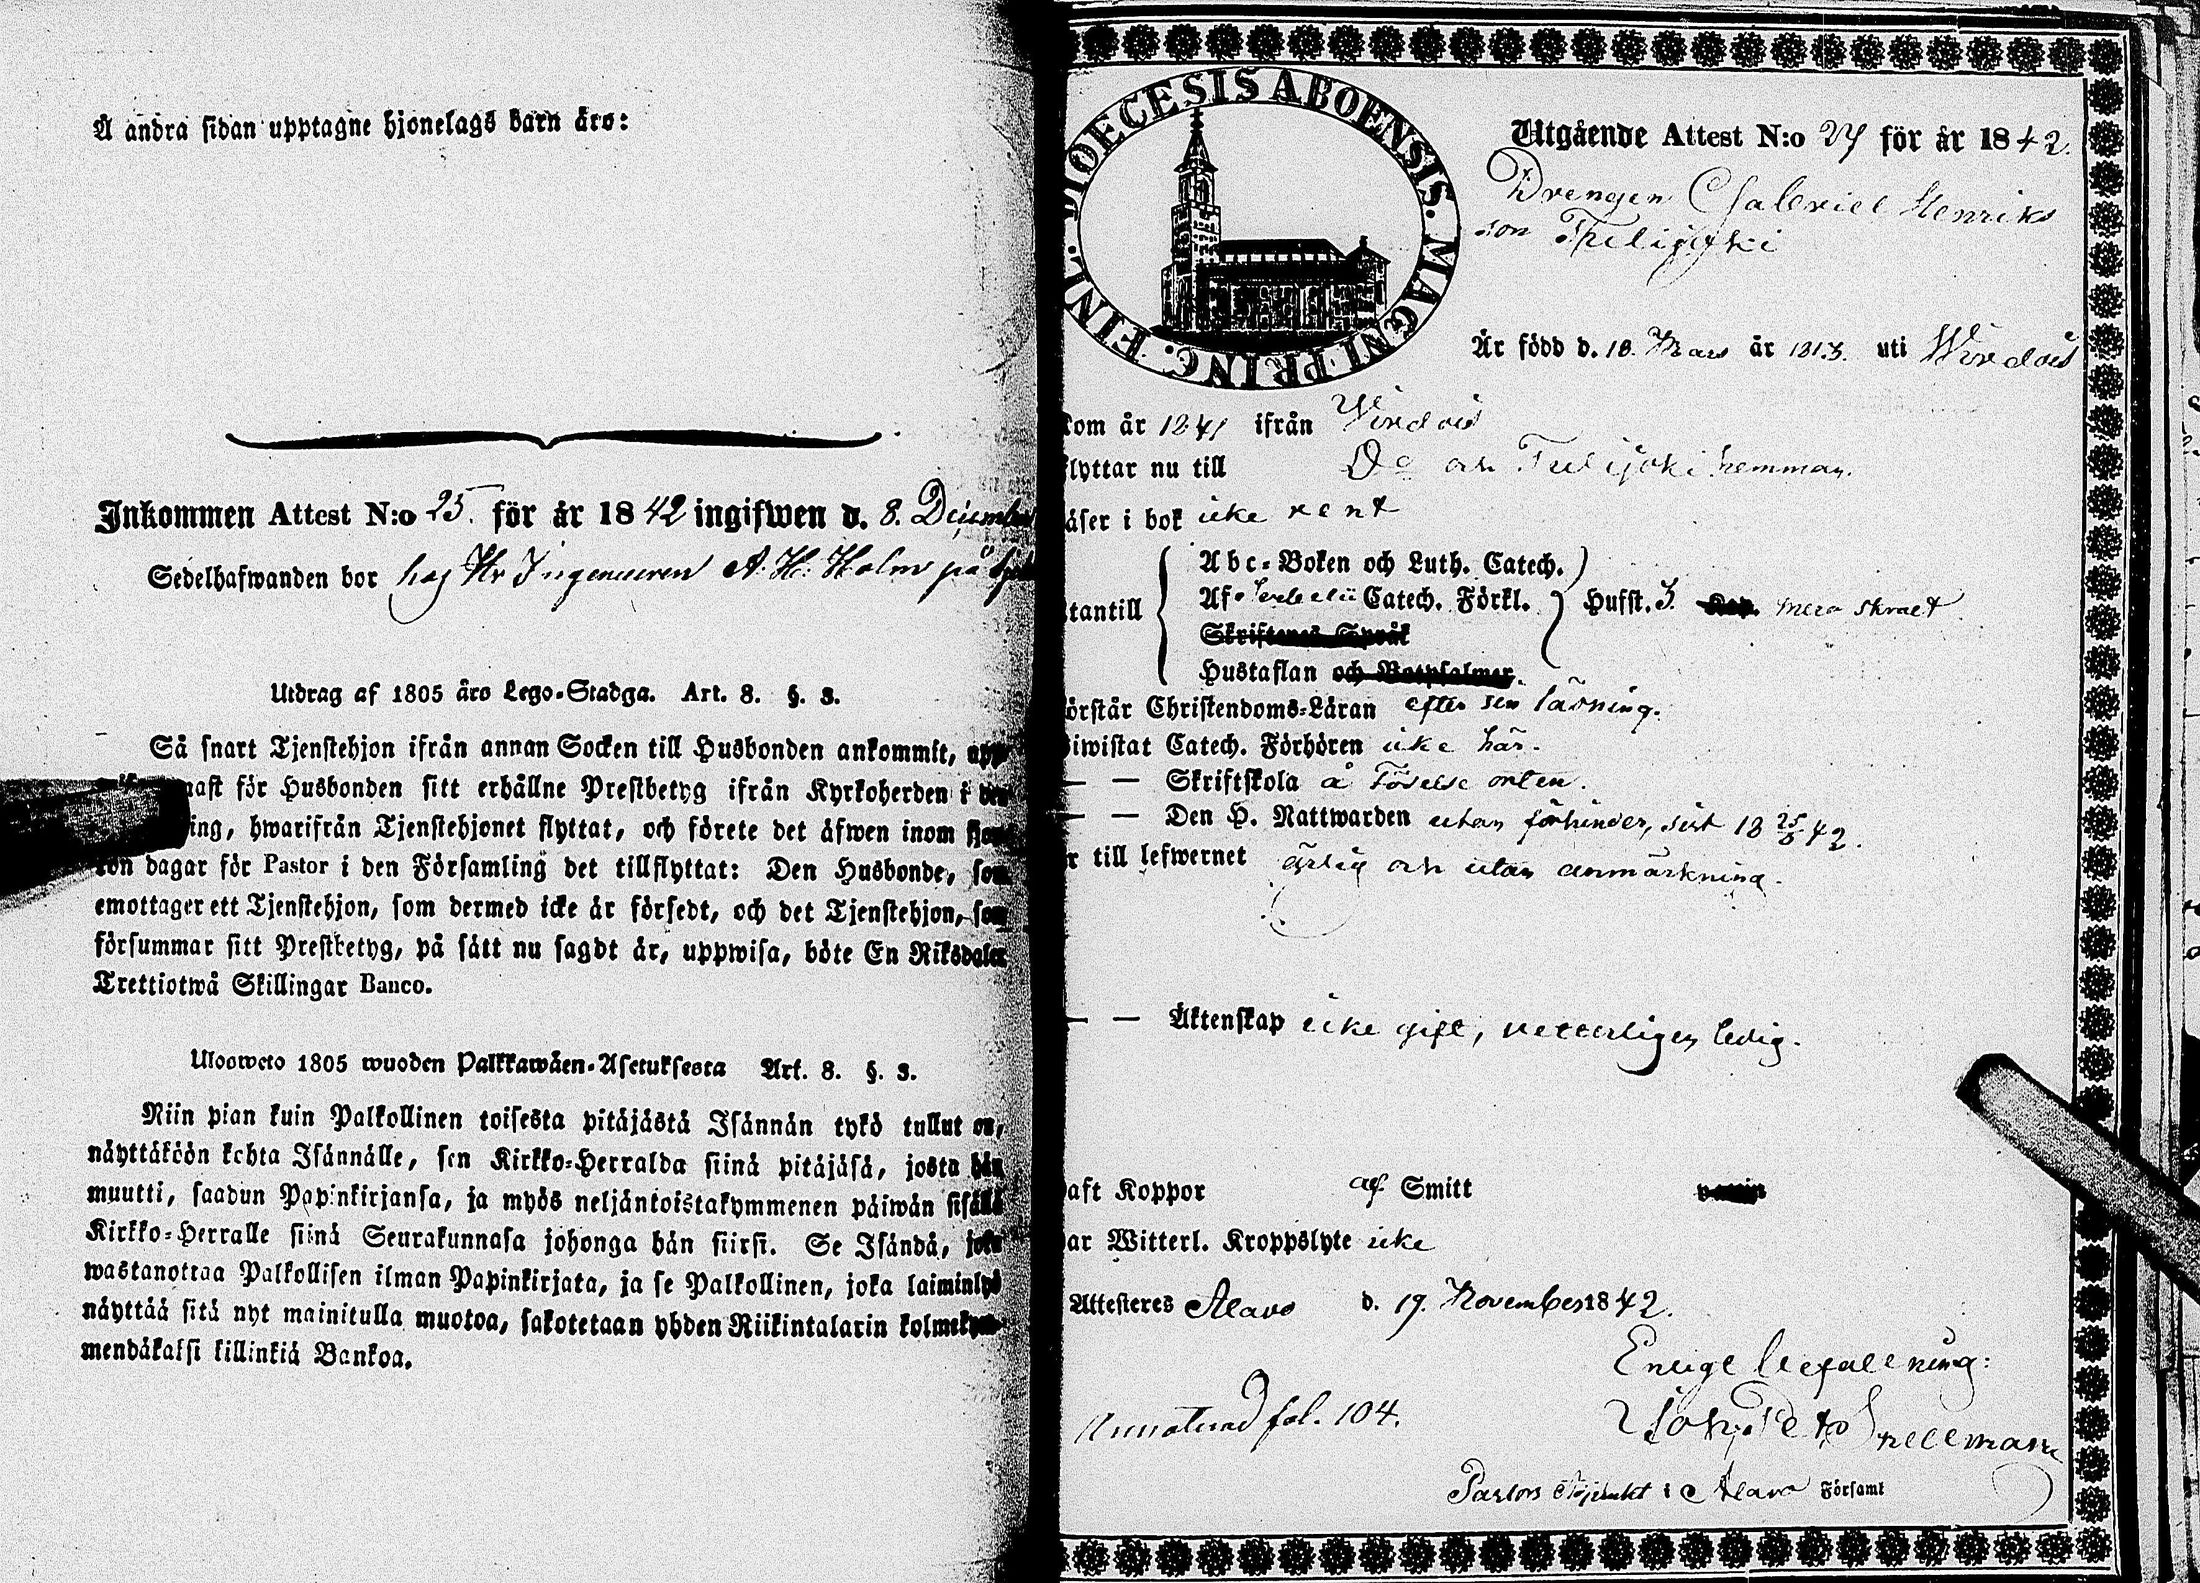 Å andra sidan upptagne hjonelags barn äro:
Inkommen Attest N:o 25. för år 1842 ingifwen d. 8. December
Sedelhafwanden bor hos Hr Ingenieuren A. H. Holm på
Utdrag af 1805 års Lego-Stadga. Art. 8. §. 3.
Så snart Tjenstehjon ifrån annan Socken till Husbonden ankommit, upp-
nast för Husbonden sitt erhållne Prestbetyg ifrån Kyrkoherden i den
ing, hwarifrån Tjenstehjonet flyttat, och förete det äfwen inom fjor-
ton dagar för Pastor i den Församling det tillflyttat: Den Husbonde, som
emottager ett Tjenstehjon, som dermed icke är försedt, och det Tjenstehjon, som
försummar sitt Prestbetyg, på sätt nu sagdt är, uppwisa, böte En Riksdaler
Trettiotwå Skillingar Banco.
Ulosweto 1805 wuoden Palkkawäen-Asetuksesta Art. 8. §. 3.
Niin pian kuin Palkollinen toisesta pitäjästä Isännän tykö tullut on,
näyttäköön kohta Isännälle, sen Kirkko-Herralda siinä pitäjäsä, josta hän
muutti, saadun Papinkirjansa, ja myös neljäntoistakymmenen päiwän sisällä
Kirkko-Herralle siinä Seurakunnasa johonga hän siirsi. Se Isändä, joka
wastanottaa Palkollisen ilman Papinkirjata, ja se Palkollinen, joka laiminlyö
näyttää sitä nyt mainitulla muotoa, sakotetaan yhden Riikintalarin kolmekym-
mendäkaksi killinkiä Bankoa.
DIOECESIS ABOENSIS. MAGNI PRINC. FINL.
Utgående Attest N:o 27 för år 1842.
Drengen Gabriel Henriks
son Tulijoki
Är född d. 18. Mars år 1813. uti Wirdois
kom år 1841 ifrån Virdois
flyttar nu till Do och Tulijoki hemman.
läser i bok icke rent
Abc-Boken och Luth. Catech.
utantill Af Svebelii Catech. Förkl. Husst. 3. Kap. mera skralt
Skriftenes Språk
Hustaflan och Botpsalmer.
förstår Christendoms-Läran efter sin läsning.
biwistat Catech. Förhören icke här.
— — Skriftskola å Födelse orten.
— — Den H. Nattwarden utan förhinder, sist 18 25/8 42.
är till lefwernet ärlig och utan anmärkning.
— — Äktenskap icke gift, vetterligen ledig.
haft Koppor af Smitt
har Witterl. Kroppslyte icke
Attesteres Alavo d. 19. November 1842.
Enligt befallning:
fol. 104. Joh. Petr Snellman
Pastors Adjunkt i Alavo Församl